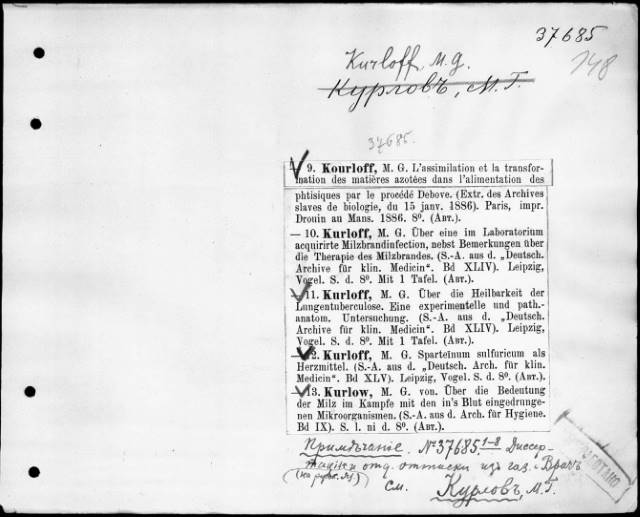 37685
148
Kurloff, M. G.
Курловъ, М. Г.
37685.
9. Kourloff, M. G. L'assimilation et la transfor-
mation des matières azotées dans l'alimentation des
phtisiques par le procédé Debove. (Extr. des Archives
slaves de biologie, du 15 janv. 1886). Paris, impr.
Drouin au Mans. 1886. 8⁰. (Авт.).
— 10. Kurloff, M. G. Über eine im Laboratorium
acquirirte Milzbrandinfection, nebst Bemerkungen über
die Therapie des Milzbrandes. (S.-A. aus d. „Deutsch.
Archive für klin. Medicin“. Bd XLIV). Leipzig,
Vogel. S. d. 8⁰. Mit 1 Tafel. (Авт.).
— 11. Kurloff, M. G. Über die Heilbarkeit der
Lungentuberculose. Eine experimentelle und path.-
anatom. Untersuchung. (S.-A. aus d. „Deutsch.
Archive für klin. Medicin“. Bd XLIV). Leipzig,
Vogel. S. d. 8⁰. Mit 1 Tafel. (Авт.).
— 12. Kurloff, M. G. Sparteïnum sulfuricum als
Herzmittel. (S.-A. aus d. „Deutsch. Arch. für klin.
Medicin“. Bd XLV). Leipzig, Vogel. S. d. 8⁰. (Авт.).
— 13. Kurlow, M. G. von. Über die Bedeutung
der Milz im Kampfe mit den in's Blut eingedrunge-
nen Mikroorganismen. (S.-A. aus d. Arch. für Hygiene.
Bd IX). S. l. ni d. 8⁰. (Авт.).
Примѣчаніе. № 37685 1-8 Диссер-
тація и отд. оттиски изъ газ. „Врачъ
(на русск. яз.)
См. Курловъ, М. Г.